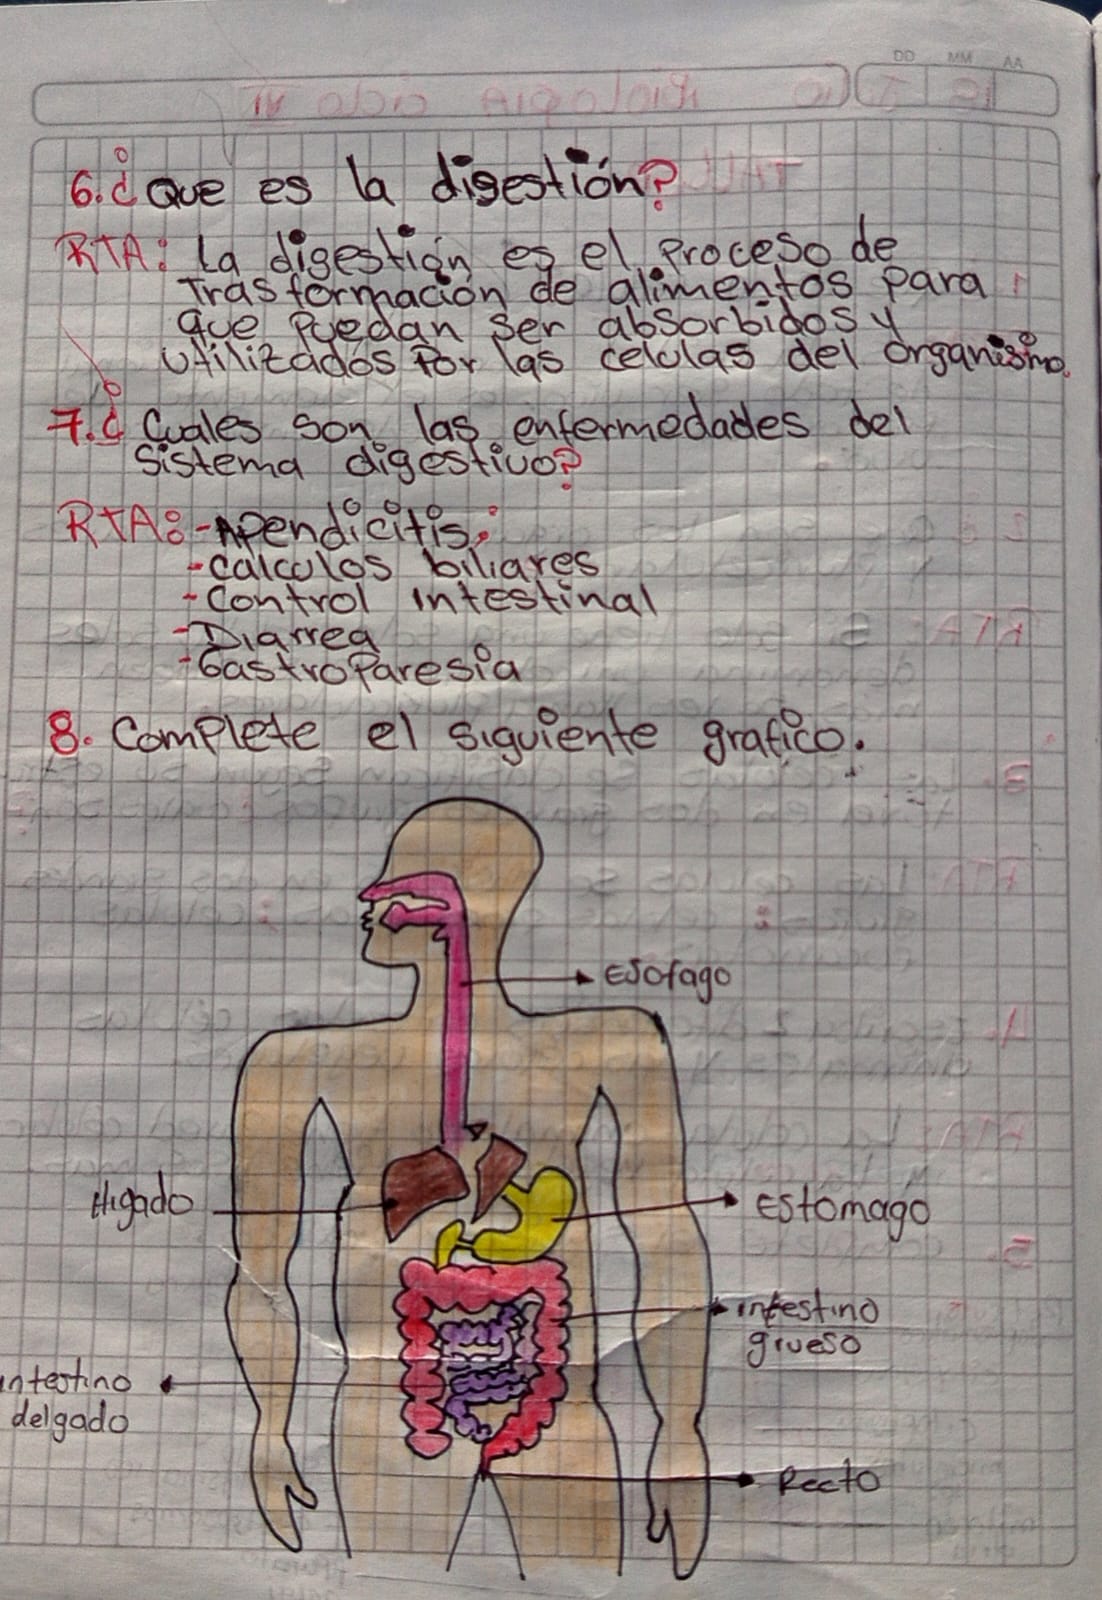 DD MM AA
6. ¿ Que es la digestión?
RTA: La digestión es el Proceso de
Trasformación de alimentos para
que Puedan ser absorbidos y
utilizados Por las celulas del organismo.
7. ¿ Cuales son las enfermedades del
Sistema digestivo?
RTA: -Apendicitis.
-Calculos biliares
-Control Intestinal
-Diarrea
-Gastroparesia
8. Complete el siguiente grafico.
Esofago
Higado
Estomago
intestino
grueso
intestino
delgado
Recto